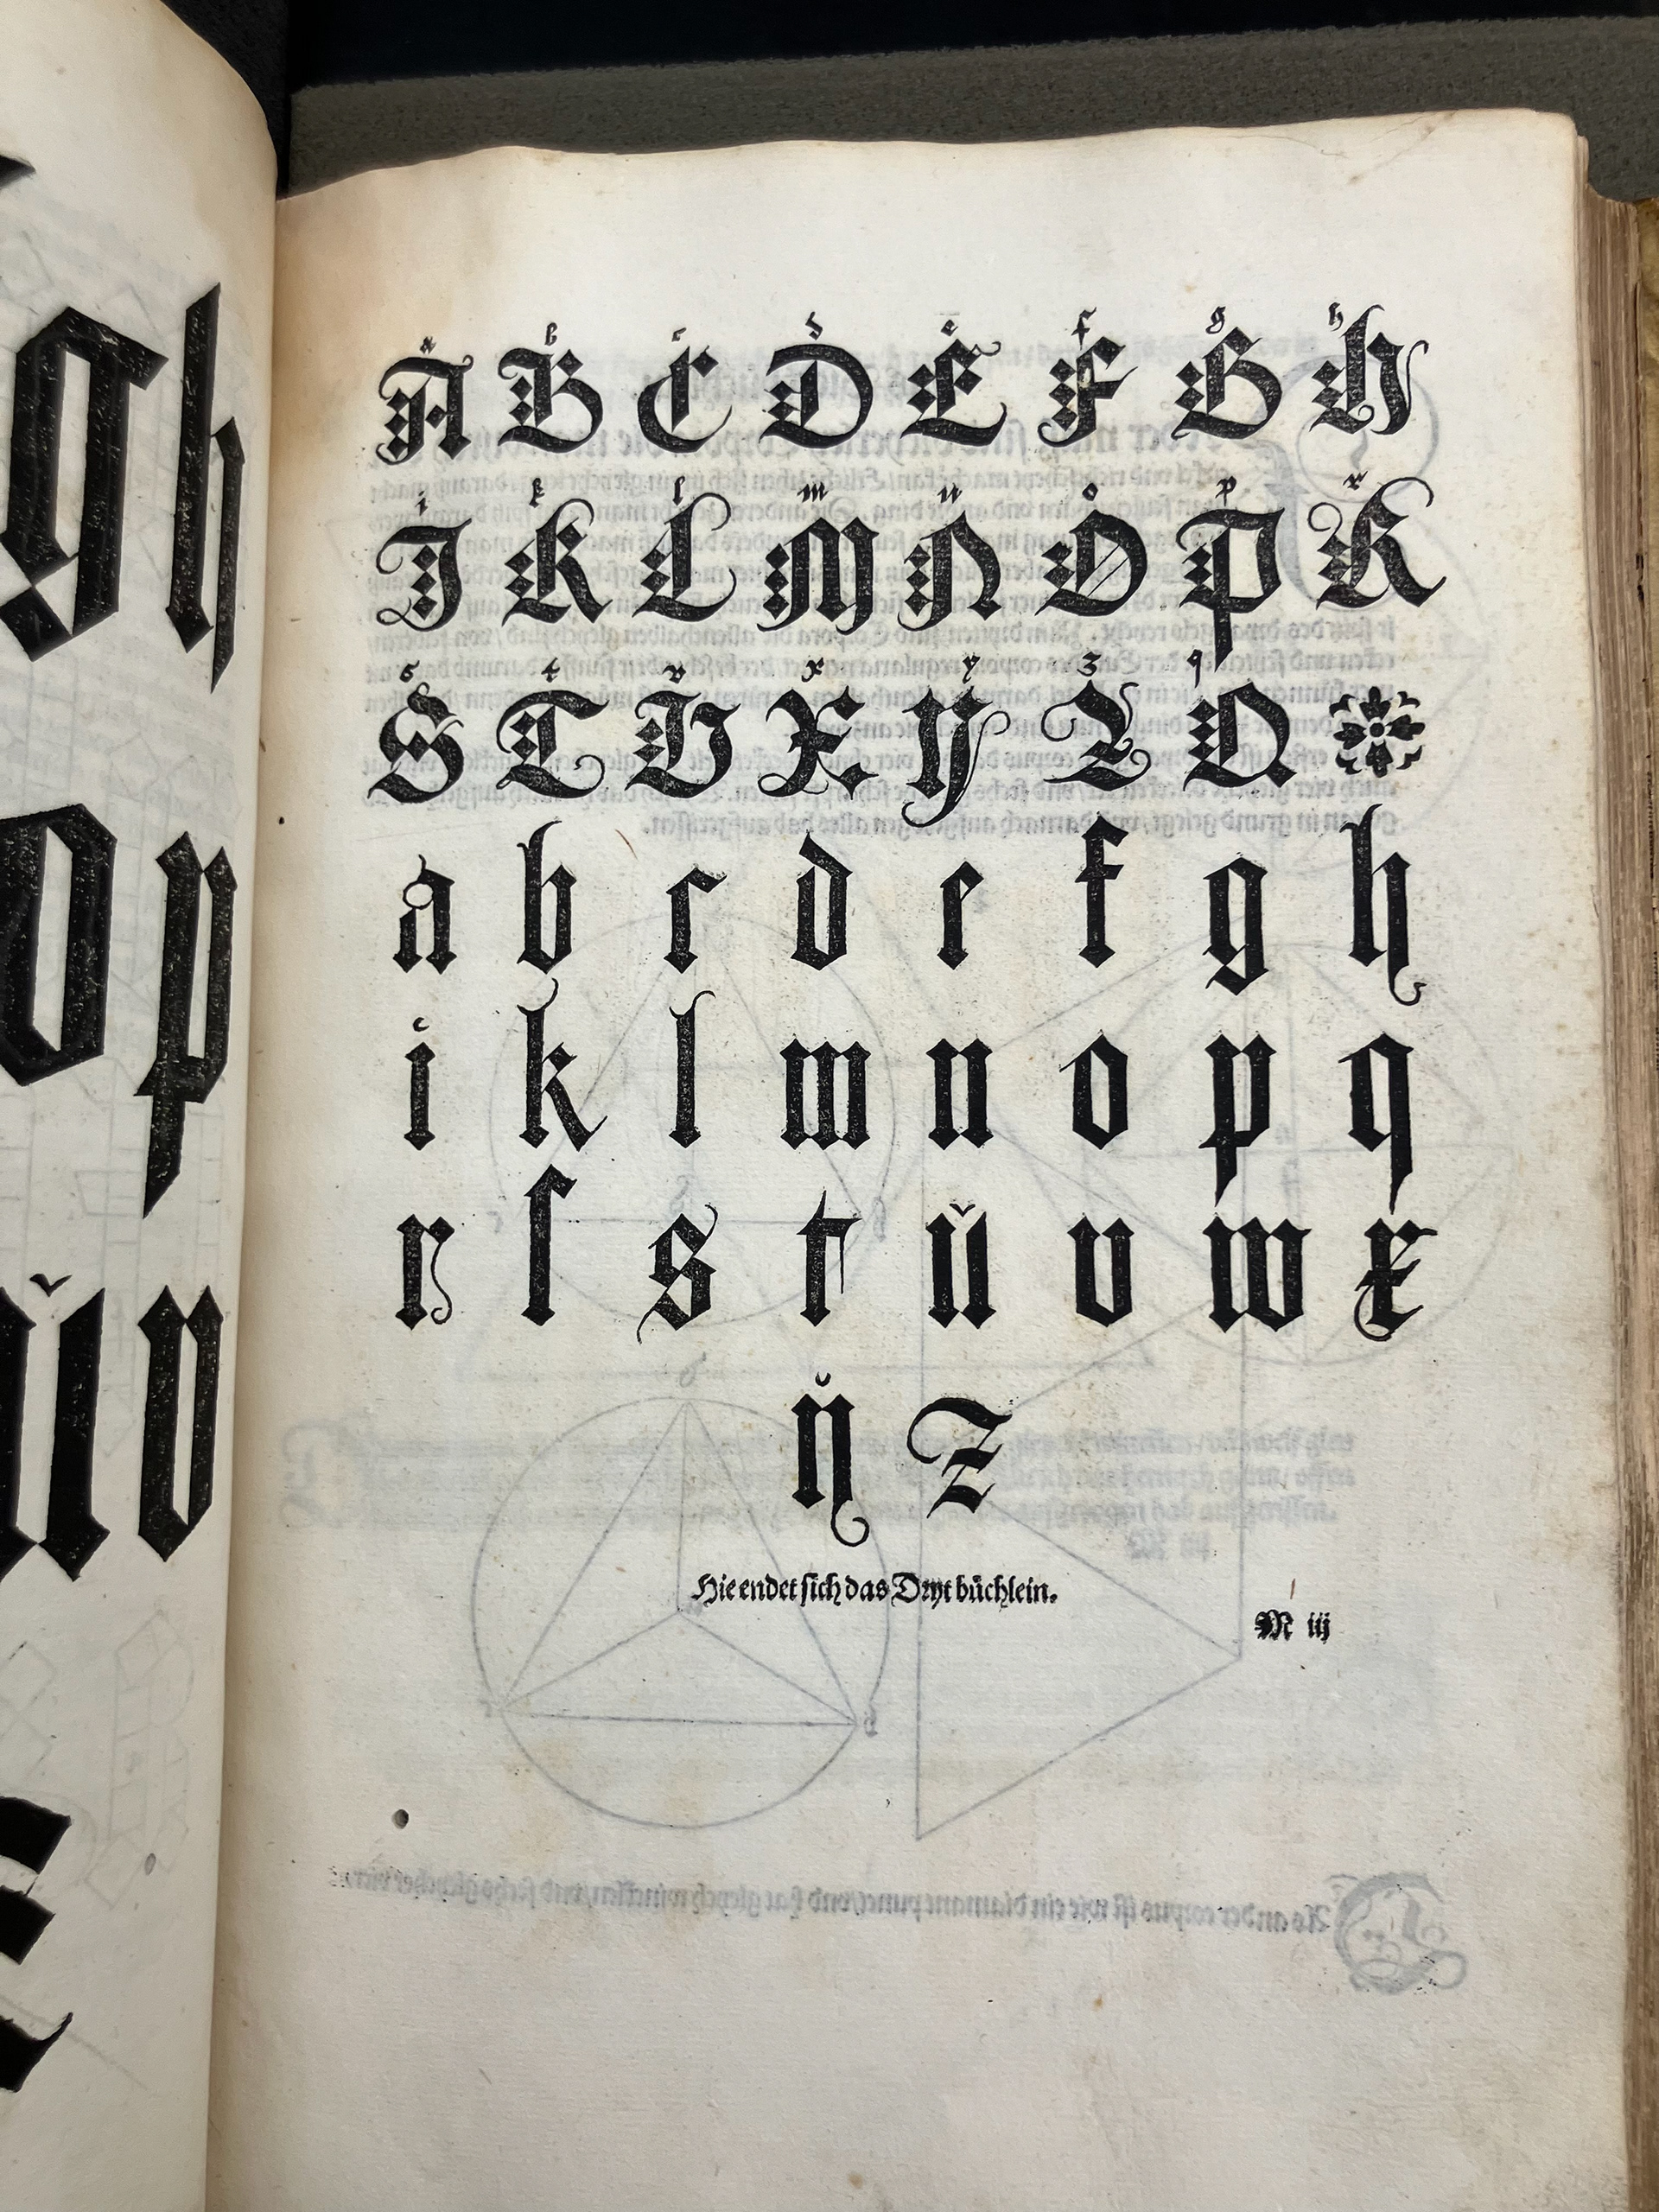 gh
op
ŭv
a b c d e f g h
A B C D E F G H
i k l m n o p r
I K L M N O P R
s t v x y z q
S T V X Y Z Q
a b c d e f g h
i k l m n o p q
r ſ s t ŭ v w x
ÿ z
Hie endet sich das Dryt büchlein.
M iij